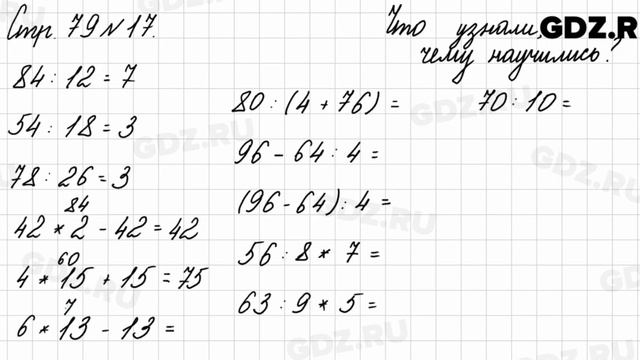 Стр. 79 № 17.
Что узнали,
чему научились?
GDZ.R
84 : 12 = 7
54 : 18 = 3
78 : 26 = 3
84
42 * 2 - 42 = 42
60
4 * 15 + 15 = 75
7
6 * 13 - 13 =
80 : (4 + 76) =
96 - 64 : 4 =
(96 - 64) : 4 =
56 : 8 * 7 =
63 : 9 * 5 =
70 : 10 =
GDZ.RU
GDZ.RU
GDZ.RU
GDZ.RU
GDZ.RU
GDZ.RU